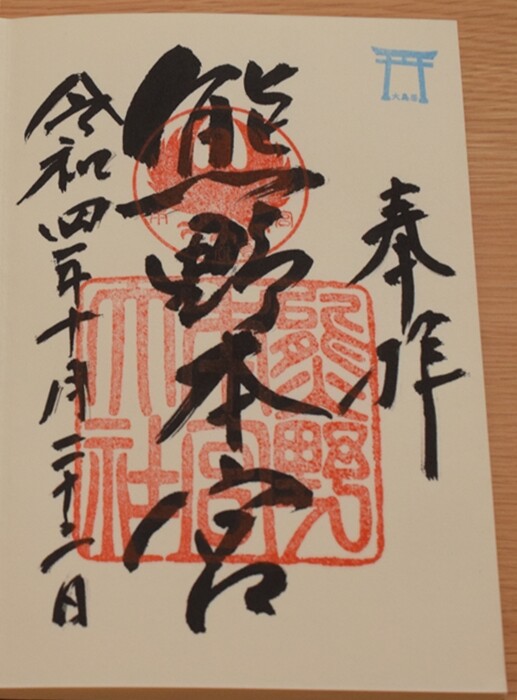 大鳥居
奉拝
熊野本宮
熊野
本宮
大社
令和四年十月二十二日